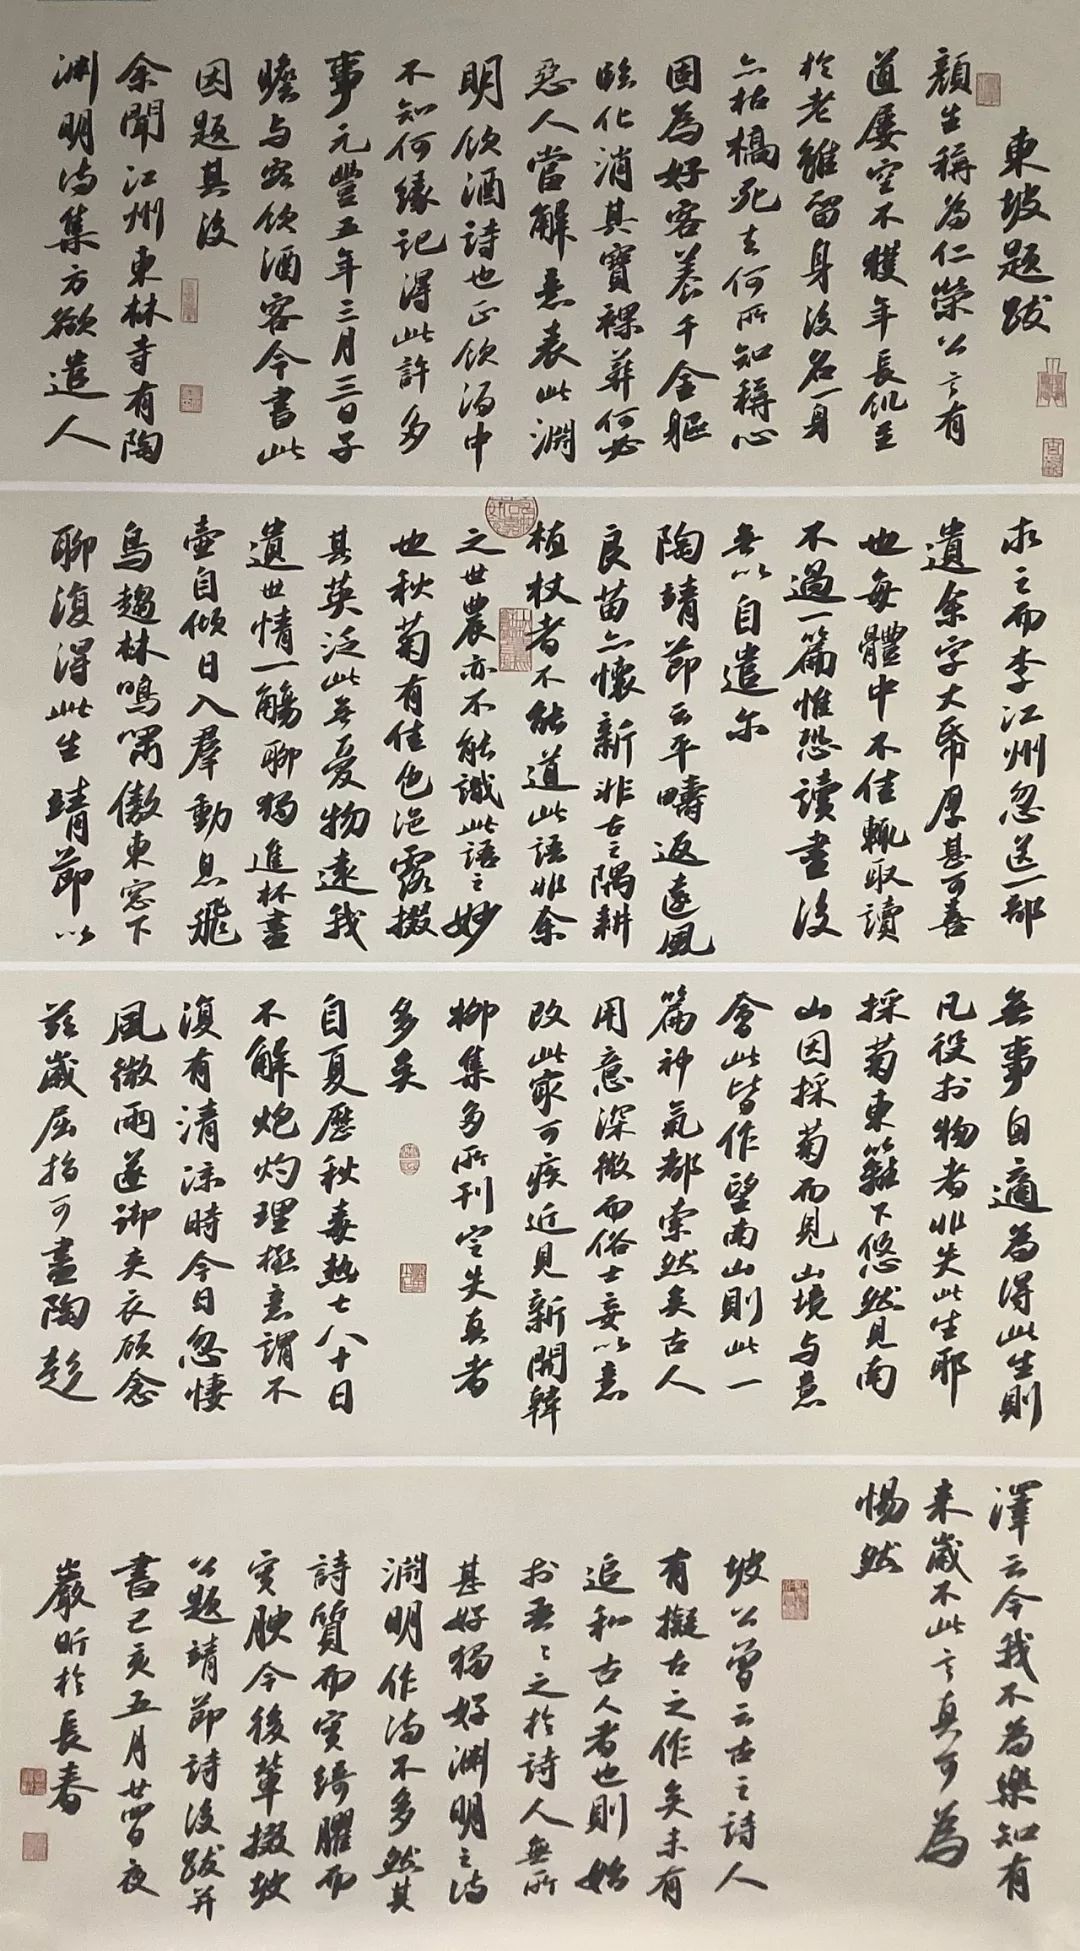 東坡題跋
顏生稱為仁榮公言有
道屢空不獲年長飢至
於老雖留身後名一身
亦枯槁死去何所知稱心
固為好客養千金軀
臨化消其寶裸葬何必
惡人當解意表此淵
明飲酒詩也正飲酒中
不知何緣記得此許多
事元豐五年三月三日子
瞻与客飲酒客令書此
因題其後
余聞江州東林寺有陶
淵明詩集方欲遣人
求之而李江州忽送一部
遺余字大帋厚甚可喜
也每體中不佳輒取讀
不過一篇惟恐讀盡後
無以自遣尔
陶靖節云平疇返遠風
良苗亦懷新非古之隅耕
植杖者不能道此語非余
之世農亦不能識此語之妙
也秋菊有佳色浥露掇
其英泛此無憂物遠我
遺世情一觴聊獨進杯盡
壺自傾日入羣動息飛
鳥趨林鳴嘯傲東窓下
聊復得此生靖節以
無事自適為得此生則
凡役於物者非失此生耶
採菊東籬下悠然見南
山因採菊而見山境与意
會此皆作望南山則此一
篇神氣都索然矣古人
用意深微而俗士妄以意
改此最可疾近見新開韓
柳集多所刊定失真者
多矣
自夏歷秋毒熱七八十日
不解炮灼理極意謂不
復有清涼時今日忽悽
風微雨遂御夾衣顧念
茲歲屈指可盡陶彭
澤云今我不為樂知有
来歲不此言真可為
惕然
坡公曾云古之詩人
有擬古之作矣未有
追和古人者也則始
於吾吾之於詩人無所
甚好獨好淵明之詩
淵明作詩不多然其
詩質而實綺臞而
實腴今後輩掇坡
公題靖節詩後跋并
書己亥五月廿四日夜
嚴昕於長春